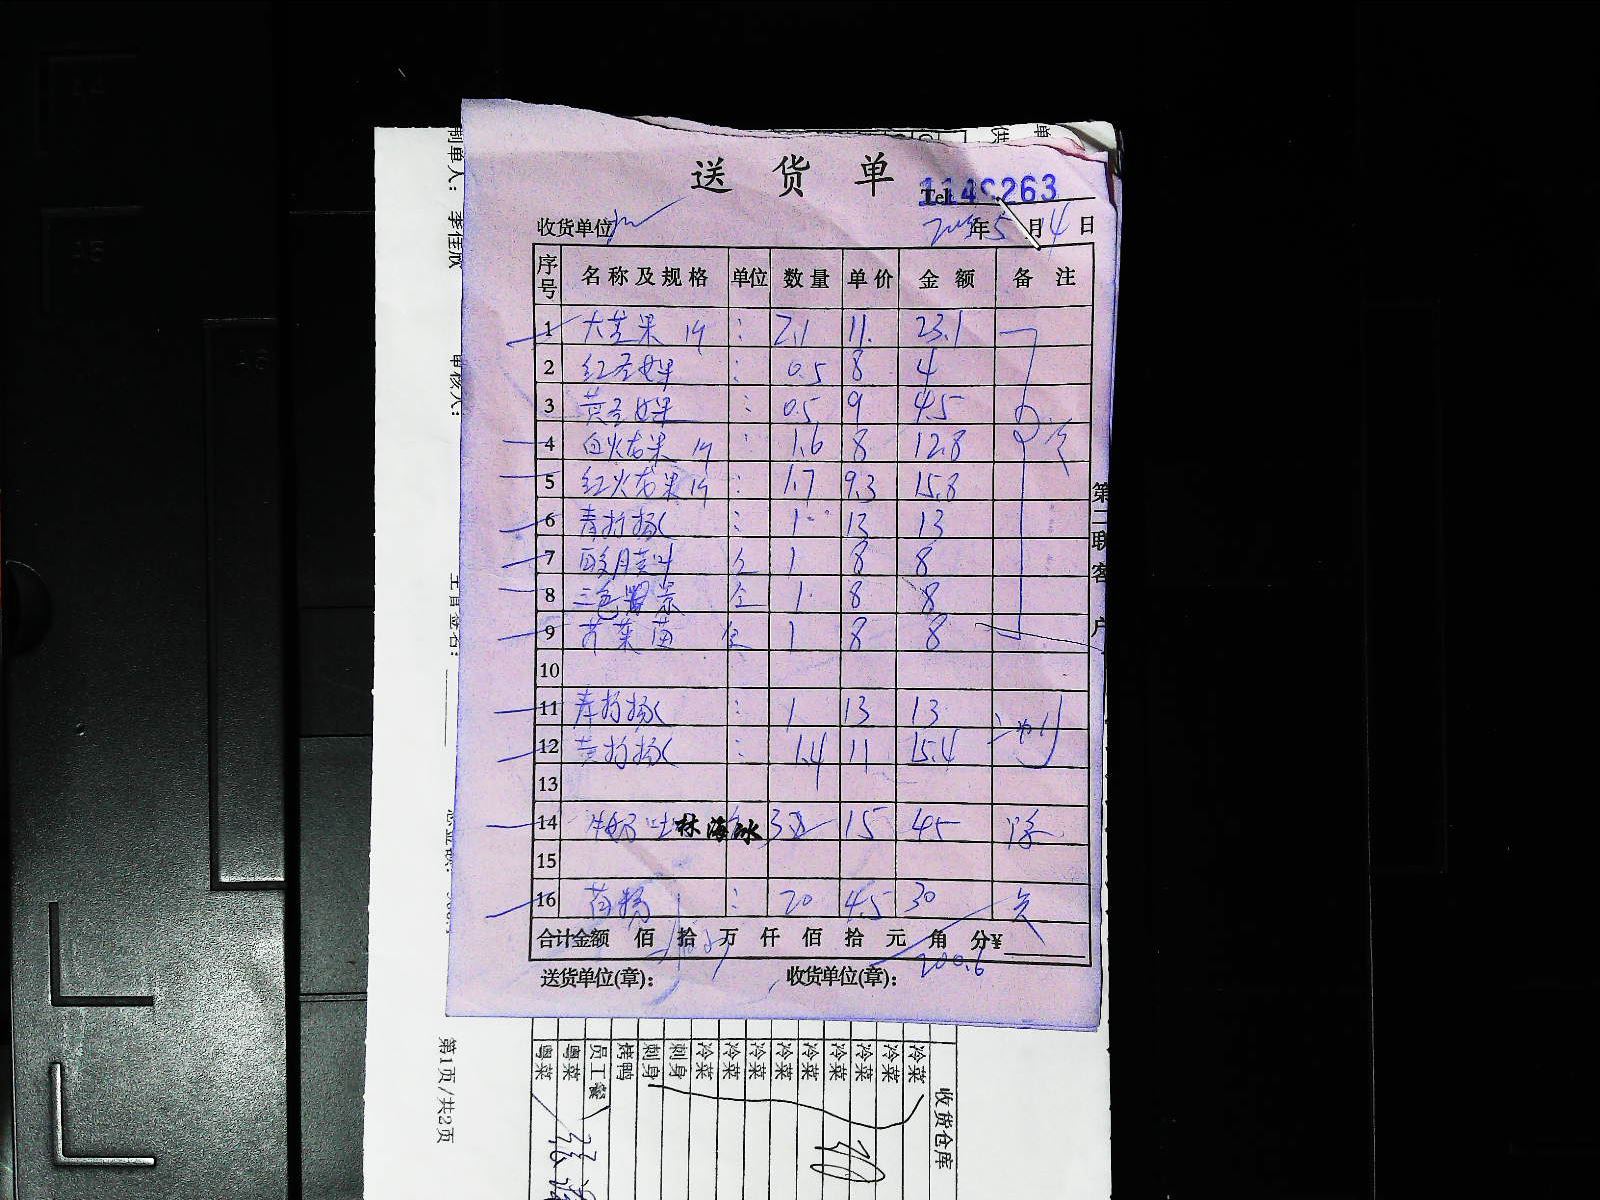 送货单
Tel: 1149263
收货单位 年5月14日
序号 名称及规格 单位 数量 单价 金额 备注
1 大芒果 1个 : 2.1 11. 23.1
2 红圣女果 : 0.5 8 4
3 黄圣女果 : 0.5 9 4.5
4 白火龙果 1个 : 1.6 8 12.8 冷
5 红火龙果 1个 : 1.7 9.3 15.8
6 青柠檬 : 1 13 13
7 酸月菜叶 仝 1 8 8
8 三色堇 仝 1 8 8
9 芥菜苗 仝 1 8 8
10
11 青柠檬 : 1 13 13
12 黄柠檬 : 1.4 11 15.4
13
14 牛奶 林海冰 3 15 45
15
16 : 20 4.5 30
合计金额 佰 拾 万 仟 佰 拾 元 角 分¥
200.6
送货单位(章): 收货单位(章):
第二联客户
制单人: 李佳欣
审核人:
主管签名:
第1页/共2页
收货仓库
冷菜
冷菜
冷菜
冷菜
冷菜
冷菜
冷菜
冷菜
冷菜
刺身
刺身
烤鸭
员工餐
粤菜
粤菜